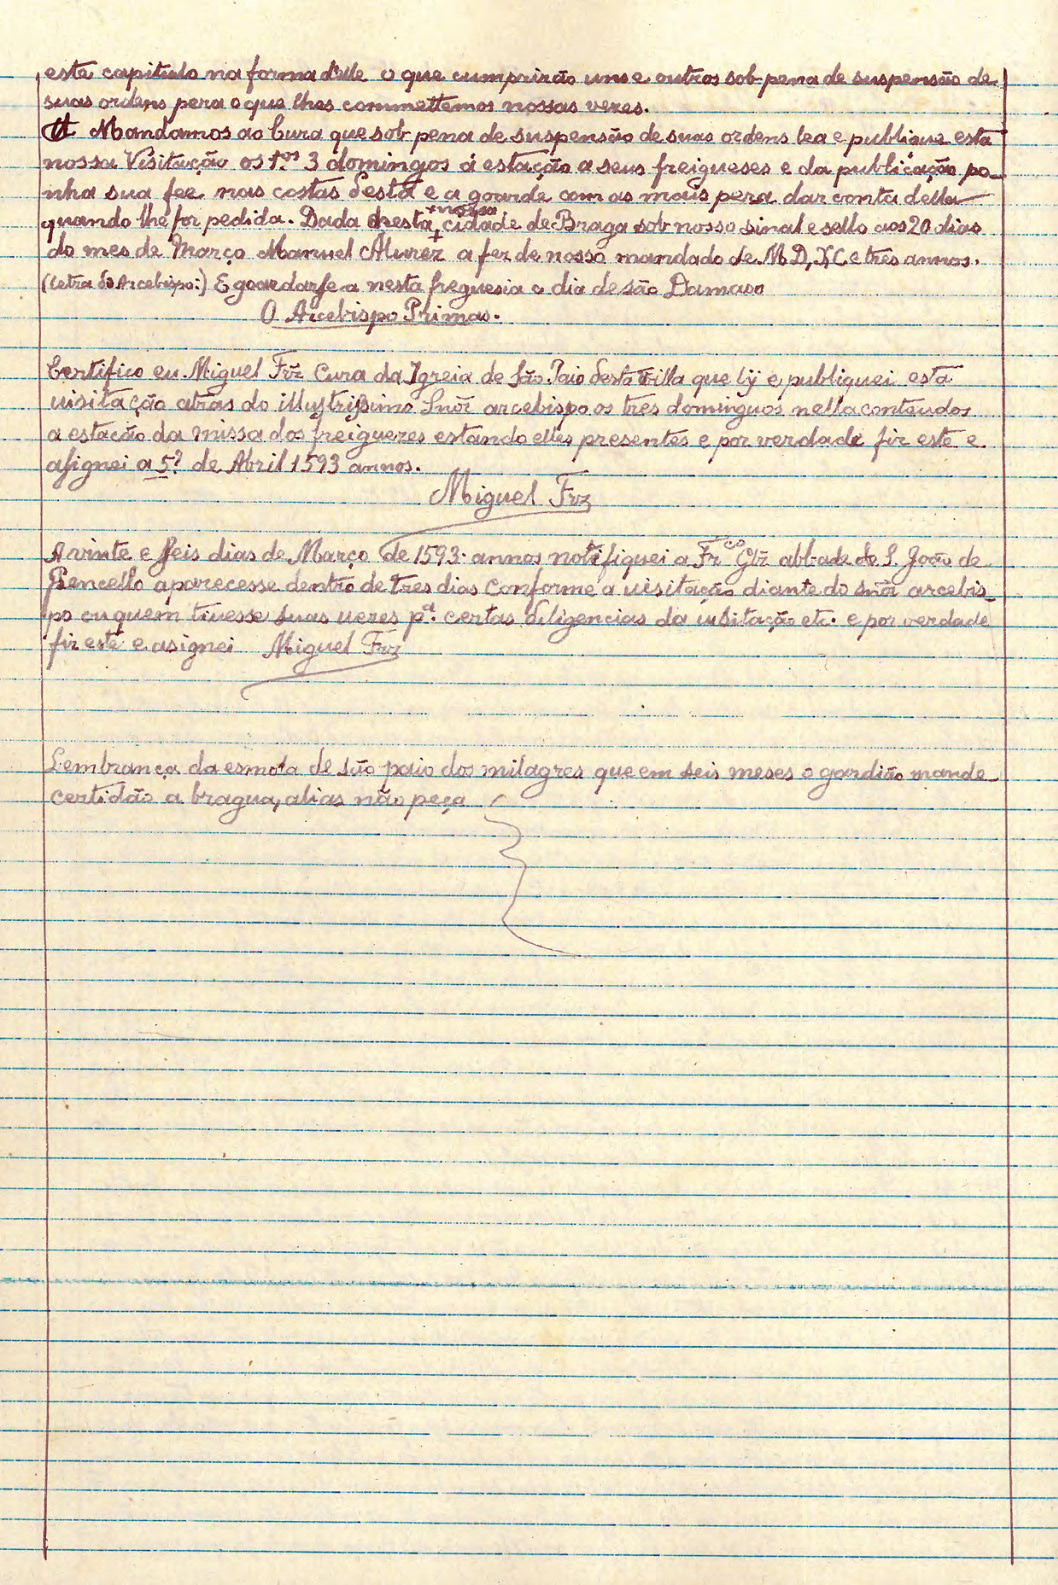 este capitulo na forma delle o que cumprirão uns e outros sob pena de suspensão de
suas ordens pera o que lhes commettemos nossas vezes.
Mandamos ao Cura que sob pena de suspensão de suas ordens lea e publique esta
nossa Visitação os 1.os 3 domingos á estação a seus freigueses e da publicação po-
nha sua fee nas costas desta e a goarde com as mais pera dar conta della
quando lhe for pedida. Dada nesta + nossa cidade de Braga sob nosso sinal e sello aos 20 dias
do mes de Março Manuel Alurez a fez de nosso mandado de M D, XC e tres annos.
(Letra do Arcebispo:) E goardarse a nesta freguesia o dia de são Damaso
O Arcebispo Primas.
Certifico eu Miguel Frz Cura da Igreia de São Paio desta Villa que lÿ e publiquei esta
uisitação atras do illustrissimo Snõr arcebispo os tres dominguos nella contendos
a estacão da missa dos freiguezes estando elles presentes e por verdade fiz este e
asignei a 5? de Abril 1593 annos.
Miguel Frz
A vinte e seis dias de Março de 1593 annos notifiquei a Fr.co Glz abbade de S. João de
Pencello aparecesse dentro de tres dias conforme a uisitação diante do snõr arcebis-
po ou quem tiuesse suas uezes p.a certas diligencias da uisitação etc. e por verdade
fiz este e asignei Miguel Frz
Lembrança da esmola de são paio dos milagres que em seis meses o gardião mande
certidão a bragua, alias não peça